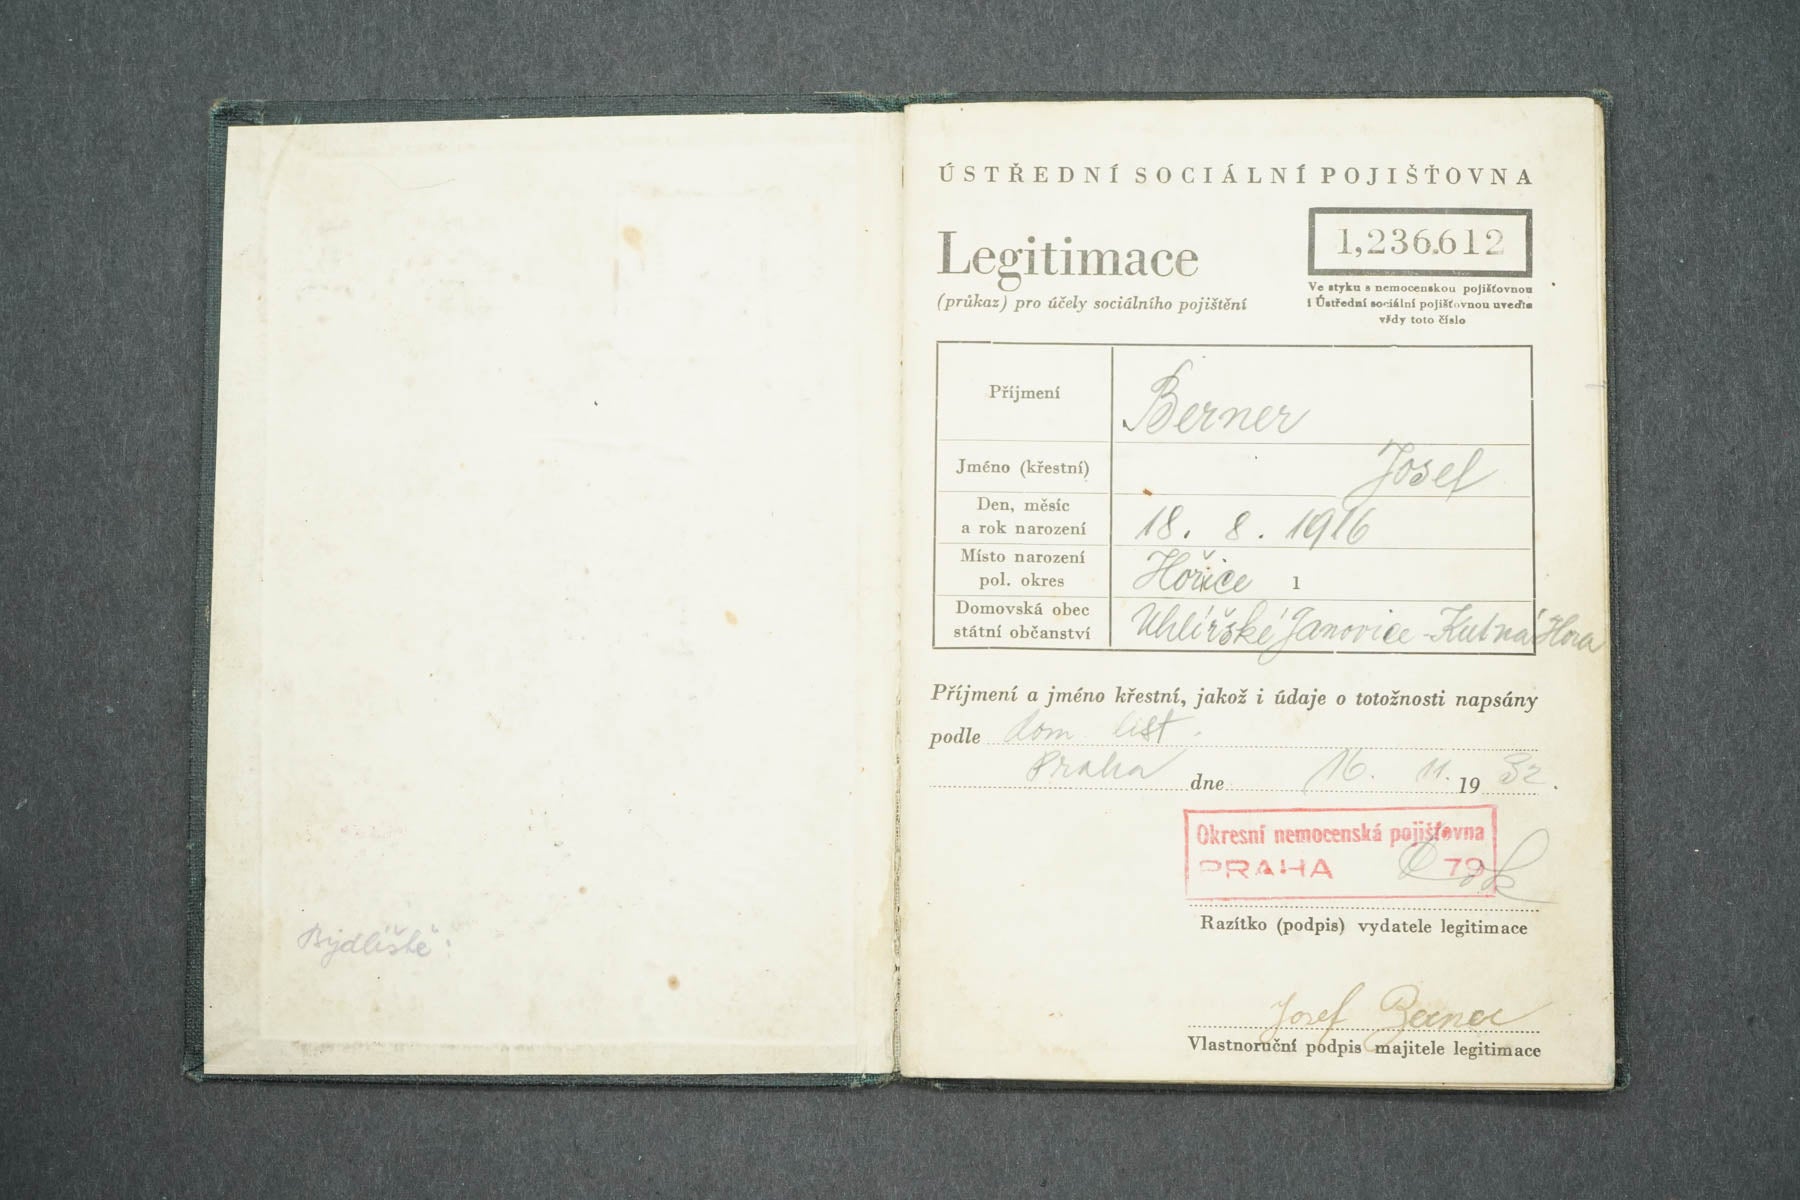 Bydliště:
ÚSTŘEDNÍ SOCIÁLNÍ POJIŠŤOVNA
Legitimace
(průkaz) pro účely sociálního pojištění
1,236.612
Ve styku s nemocenskou pojišťovnou
i Ústřední sociální pojišťovnou uveďte
vždy toto číslo
Příjmení Berner
Jméno (křestní) Josef
Den, měsíc
a rok narození 18. 8. 1916
Místo narození
pol. okres Hořice 1
Domovská obec
státní občanství Uhlířské Janovice - Kutná Hora
Příjmení a jméno křestní, jakož i údaje o totožnosti napsány
podle dom. list.
Praha dne 16. 11. 1932.
Okresní nemocenská pojišťovna
PRAHA 79
Razítko (podpis) vydatele legitimace
Josef Berner
Vlastnoruční podpis majitele legitimace